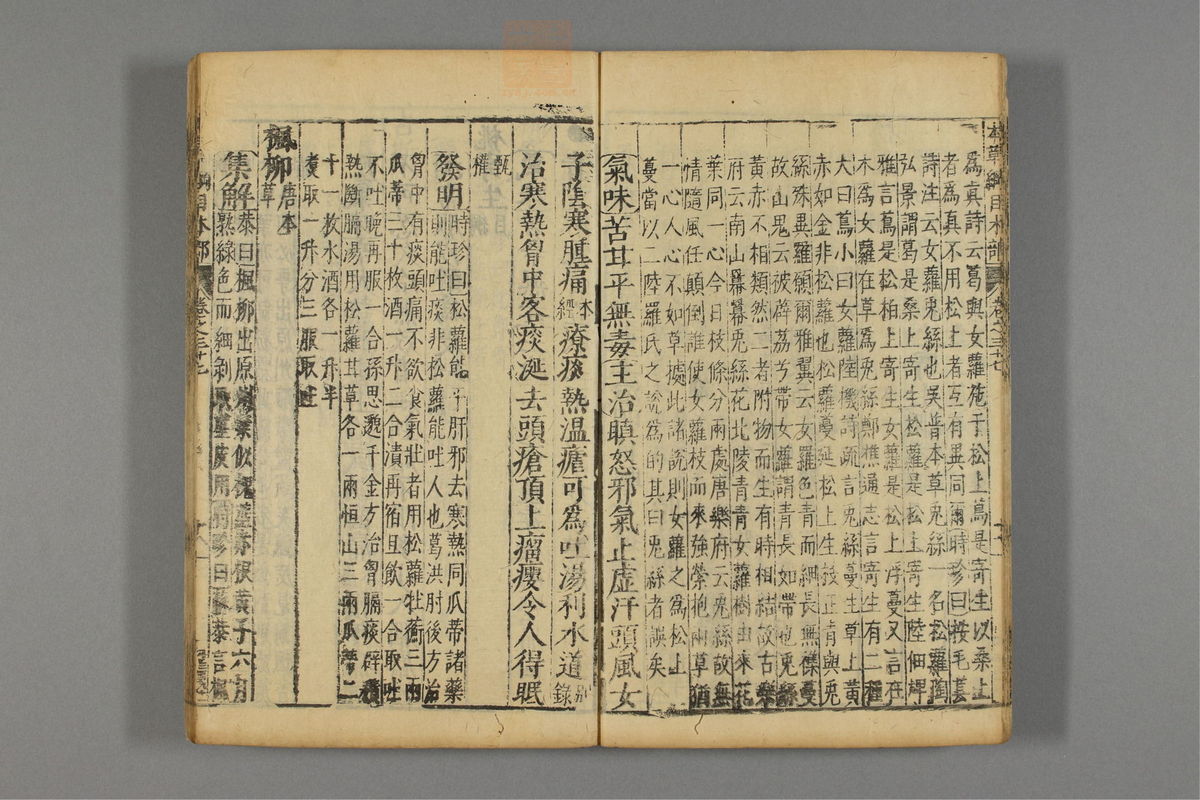 爲真詩云蔦與女蘿施于松上蔦是寄生以桑上
者爲真不用松上者互有異同爾時珍曰按毛萇
詩注云女蘿兎絲也吳普本草兎絲一名松蘿陶
弘景謂蔦是桑上寄生松蘿是松上寄生陸佃埤
雅言蔦是松柏上寄生女蘿是松上浮蔓又言在
木爲女蘿在草爲兎絲鄭樵通志言寄生有二種
大曰蔦小曰女蘿陸機詩疏言兎絲蔓生草上黃
赤如金非松蘿也松蘿蔓延松上生枝正青與兎
絲殊異羅願爾雅翼云女蘿色青而細長無雜蔓
故山鬼云被薜荔兮帶女蘿謂青長如帶也兎絲
黃赤不相類然二者附物而生有時相結故古樂
府云南山冪冪兎絲花北陵青青女蘿樹由來花
葉同一心今日枝條分兩處唐樂府云兎絲故無
情隨風任顛倒誰使女蘿枝而來強縈抱兩草猶
一心人心不如草據此諸說則女蘿之爲松上
蔓當以二陸羅氏之說爲的其曰兎絲者誤矣
氣味苦甘平無毒主治瞋怒邪氣止虛汗頭風女
子陰寒腫痛本經療痰熱溫瘧可爲吐湯利水道別錄
治寒熱胷中客痰涎去頭瘡頂上瘤癭令人得眠
甄權
發明時珍曰松蘿能平肝邪去寒熱同瓜蒂諸藥
則能吐痰非松蘿能吐人也葛洪肘後方治
胷中有痰頭痛不欲食氣壯者用松蘿牡蘅三兩
瓜蒂三十枚酒一升二合漬再宿旦飲一合取吐
不吐晚再服一合孫思邈千金方治胷膈痰澼積
熱斷膈湯用松蘿甘草各一兩恒山三兩瓜蒂二
十一枚水酒各一升半
煑取一升分三服取吐
楓柳唐本草
集解恭曰楓柳出原州葉似槐莖赤根黃子六月
熟綠色而細剥取莖皮用時珍曰蘇恭言楓
本草綱目木部 卷之三十七
綱目木部 卷之三十七